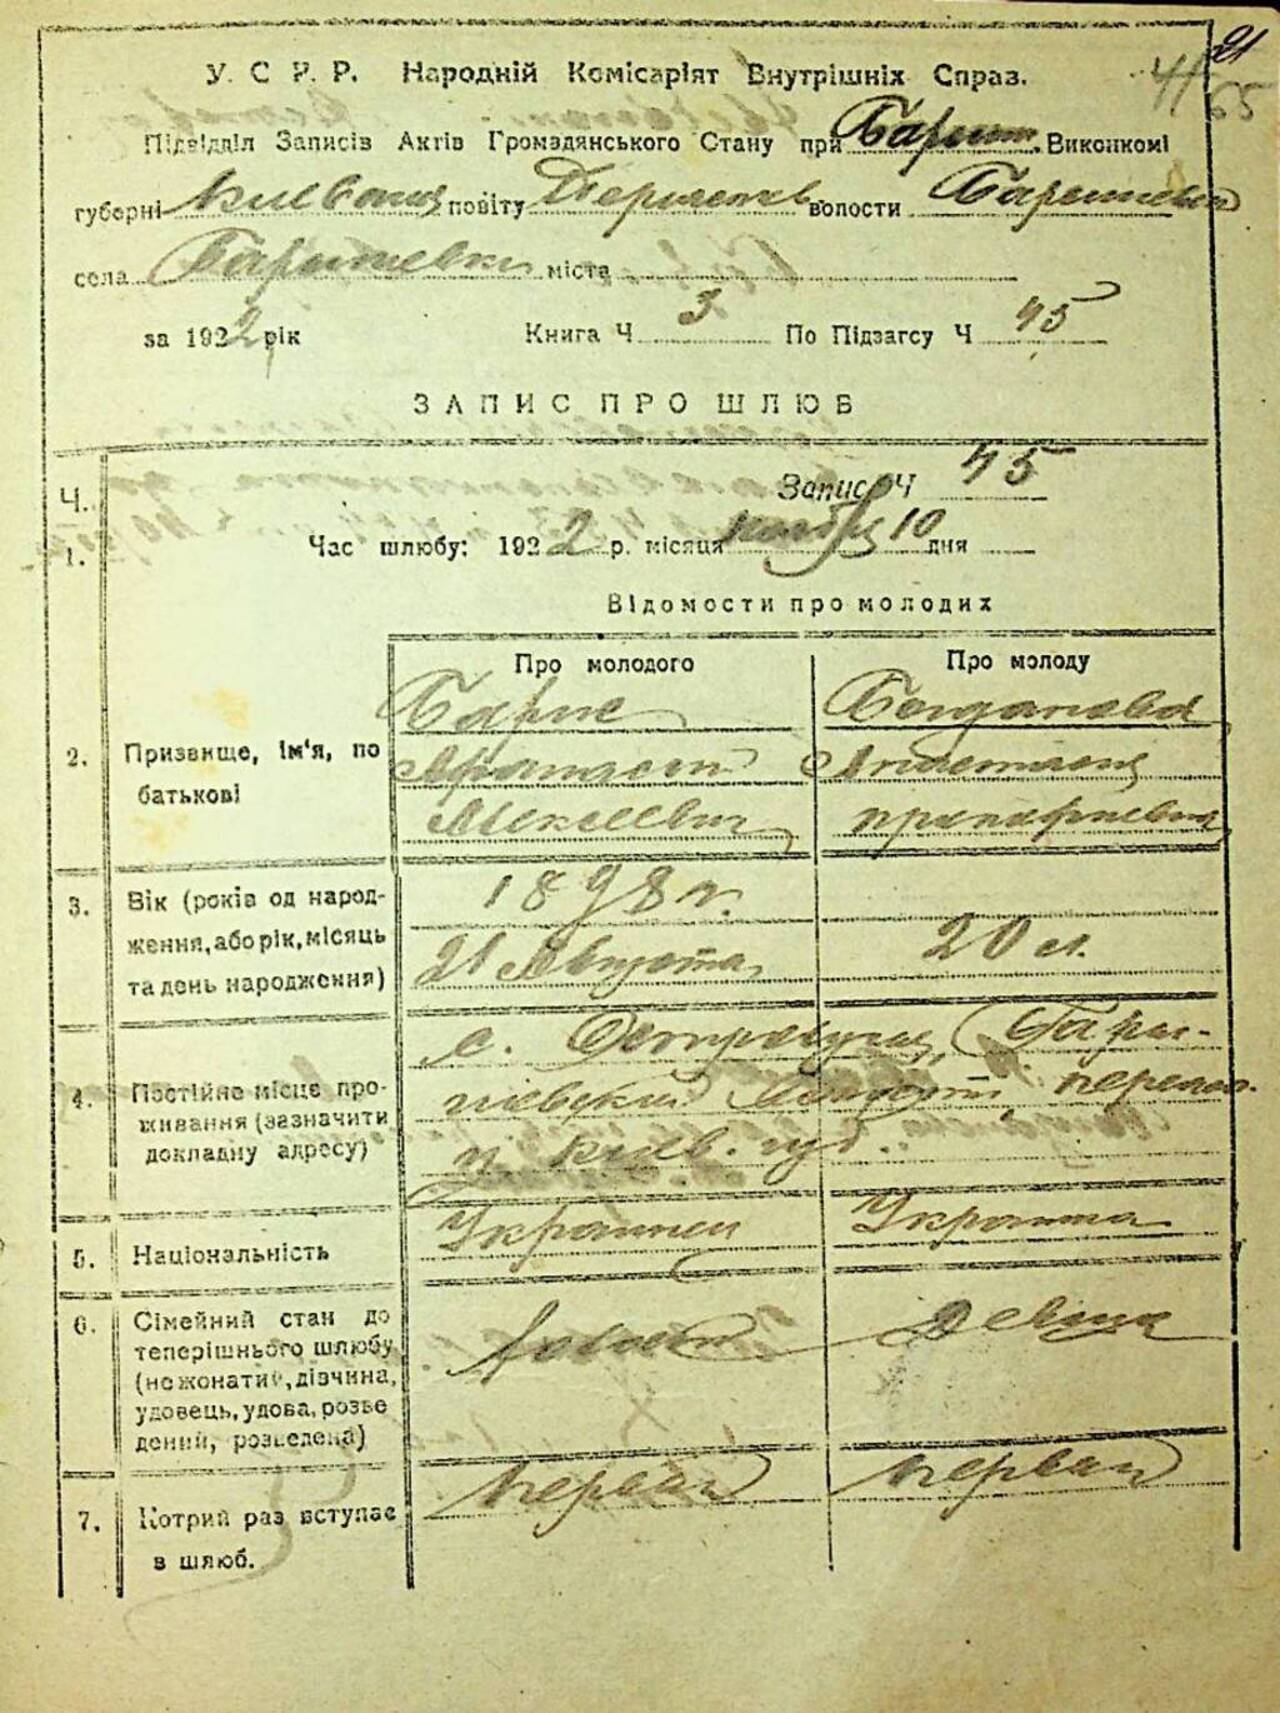 21
41/65
У. С Р. Р. Народній Комісаріят Внутрішніх Справ.
Підвідділ Записів Актів Громадянського Стану при Барыш. Виконкомі
губерні Киевской повіту Переяслав волости Барышевской
села Барышевки міста
за 1922 рік Книга Ч 3 По Підзагсу Ч 45
ЗАПИС ПРО ШЛЮБ
Ч. Запис Ч 45
1. Час шлюбу: 1922 р. місяця ноября 10 дня
Відомости про молодих
Про молодого Про молоду
2. Призвище, Ім'я, по батькові
Алексеевич
3. Вік (років од народ-
ження, або рік, місяць
та день народження)
1898 г.
21 Августа
20 л.
4. Постійне місце про-
живання (зазначити
докладну адресу)
с. Остролучя, Бары-
шевской волости, переясл.
у. Киев. губ.
5. Національність Украинец Украинка
6. Сімейний стан до
теперішнього шлюбу
(нежонатий, дівчина,
удовець, удова, розве
дений, розведена)
Девица
7. Котрий раз вступає
в шлюб.
первый первый